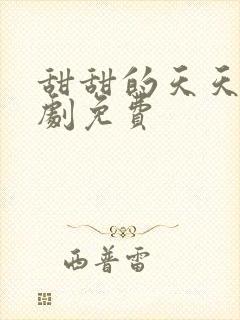 甜甜的天天
劇免費
西普雷